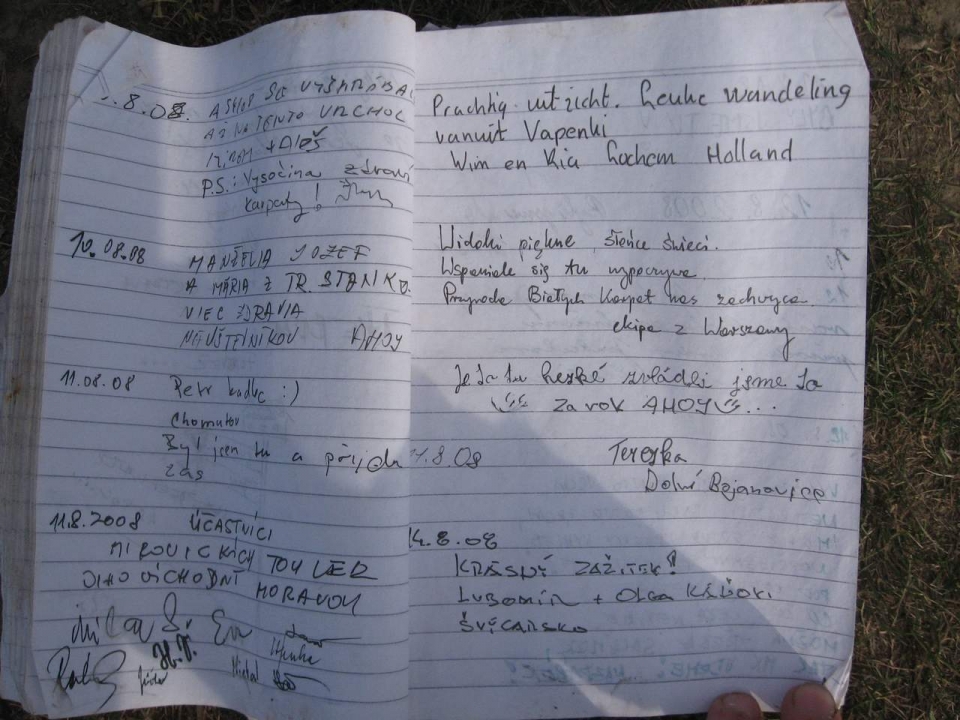 .8.08. A SKOP SE VYŠKRÁBAL
AŽ NA TENTO VRCHOL
P.S.: Vysočina zdraví
Karpaty!
10.08.08 MANŽELIA JOZEF
A MÁRIA Z TR. STANKO
VIEC ZDRAVIA
NÁVŠTEVNÍKOV AHOY
11.08.08 Petr Kadlec :)
Chomutov
Byl jsen tu a přijdu
zas
11.8.2008 ÚČASTNÍCI
MIROVICKÝCH TOULEK
JIHOVÝCHODNÍ
MORAVOU
Prachtig uitzicht. Leuke wandeling
vanuit Vapenki
Wim en Ria Lochem Holland
Widoki piękne, słońce świeci.
Wspaniale się tu wypoczywa.
Przyroda Białych Karpat nas zachwyca.
ekipa z Warszawy
Je to tu hezké zvládli jsme to
Za rok AHOY...
11.8.08 Terezka
Dolní Bojanovice
14.8.08
KRÁSNÝ ZÁŽITEK!
LUBOMÍR + OLGA
ŠVÝCARSKO